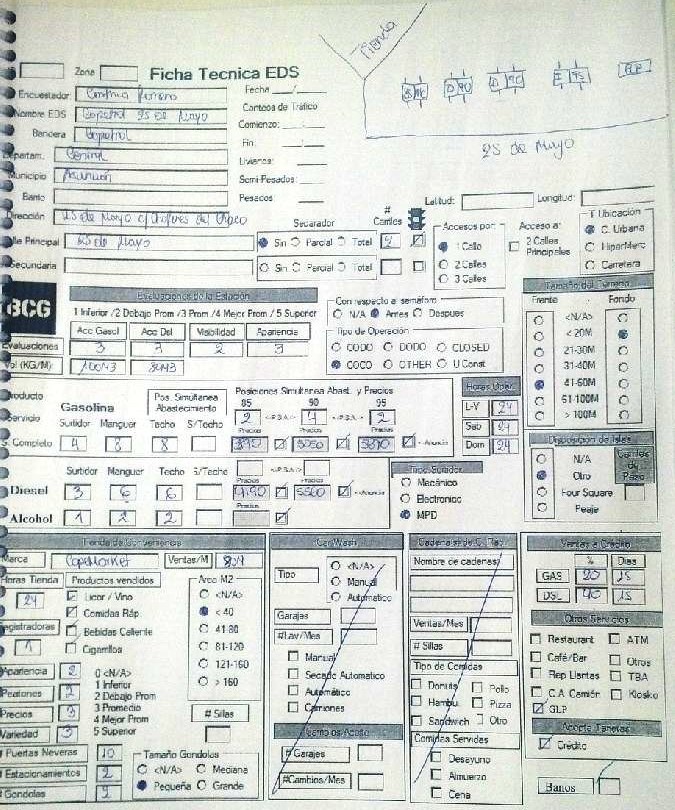 Tienda
Zona
Ficha Tecnica EDS
Encuestador
Fecha
Nombre EDS Copetrol 25 de Mayo
Conteos de Tráfico
Bandera Copetrol
Comienzo:
Fin:
25 de Mayo
Departam. Central
Livianos:
Municipio Asunción
Semi Pesados:
Barrio
Pesados
Latitud: Longitud:
Dirección 25 de Mayo c/ Choferes del Chaco
Separador # Carriles
Accesos por: Acceso a: Ubicación
Calle Principal 25 de Mayo
Sin Parcial Total 2
1 Calle
2 Calles Principales
C. Urbana
HiperMerc
Carretera
Secundaria
Sin Parcial Total
2 Calles
3 Calles
BCG
Evaluaciones de la Estación
1 Inferior /2 Debajo Prom /3 Prom /4 Mejor Prom /5 Superior
Acc Gasol Acc Dsl Visibilidad Apariencia
Evaluaciones 3 3 2 3
Vol (KG/M)
Con respecto a semáforo
N/A Antes Despues
Tipo de Operación
CODO DODO CLOSED
COCO OTHER U Const
Tamaño del Terreno
Frente Fondo
<N/A>
< 20M
21-30M
31-40M
41-60M
61-100M
> 100M
Producto
Servicio
Gasolina
Pos. Simultanea Abastecimiento
Posiciones Simultanea Abast. y Precios
85 90 95
Surtidor Manguer Techo S/Techo
2 4 2
Precios Precios Precios
S. Completo 4 8 8
Horas Oper.
L-V 24
Sab 24
Dom 24
Surtidor Manguer Techo S/Techo
Diesel 3 6 6
Precios Precios
Alcohol 1 2 2
Precios
Tipo Surtidor
Mecánico
Electronico
MPD
Disposición de Islas
N/A
Otro
Four Square
Peaje
Carriles de Paso
Tienda de Conveniencia
Marca Ventas/M
Horas Tienda 24
Productos vendidos
Licor / Vino
Comidas Ráp.
Bebidas Caliente
Cigarrillos
Registradoras 1
Area M2
<N/A>
< 40
41-80
81-120
121-160
> 160
# Sillas
Apariencia 2
Peatones
Precios 3
Variedad 3
0 <N/A>
1 Inferior
2 Debajo Prom
3 Promedio
4 Mejor Prom
5 Superior
# Puertas Neveras 10
# Estacionamientos 2
# Gondolas
Tamaño Gondolas
<N/A> Mediana
Pequeña Grande
Car Wash
Tipo
<N/A>
Manual
Automatico
Garajes
#Lav/Mes
Manual
Secado Automatico
Automático
Camiones
# Garajes
#Cambios/Mes
Nombre de cadenas
Ventas/Mes
# Sillas
Tipo de Comidas
Donuts Pollo
Hambu. Pizza
Sandwich Otro
Comidas Servidas
Desayuno
Almuerzo
Cena
Ventas a Crédito
% Dias
GAS 20 15
DSL 40 15
Otros Servicios
Restaurant ATM
Café/Bar Otros
Rep Llantas TBA
C.A Camión Kiosko
GLP
Acepta Tarjetas
Crédito
Baños